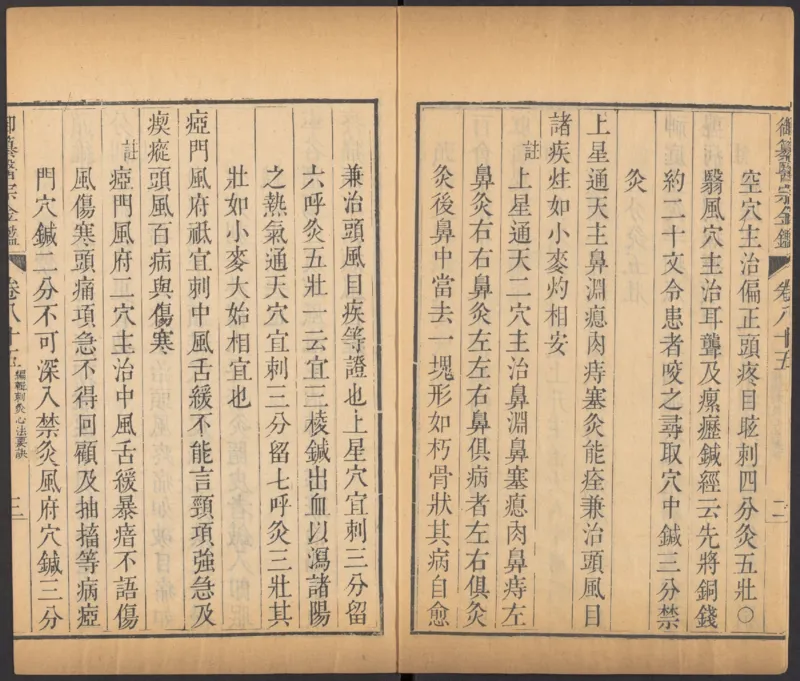 御纂醫宗金鑑
卷八十五
二
空穴主治偏正頭疼目眩刺四分灸五壯○
翳風穴主治耳聾及瘰癧鍼經云先將銅錢
約二十文令患者咬之尋取穴中鍼三分禁
灸
上星通天主鼻淵瘜肉痔塞灸能痊兼治頭風目
諸疾炷如小麥灼相安
註
上星通天二穴主治鼻淵鼻塞瘜肉鼻痔左
鼻灸右右鼻灸左左右鼻俱病者左右俱灸
灸後鼻中當去一塊形如朽骨狀其病自愈
兼治頭風目疾等證也上星穴宜刺三分留
六呼灸五壯一云宜三棱鍼出血以瀉諸陽
之熱氣通天穴宜刺三分留七呼灸三壯其
壯如小麥大始相宜也
瘂門風府祗宜刺中風舌緩不能言頸項強急及
瘈瘲頭風百病與傷寒
註
瘂門風府二穴主治中風舌緩暴瘖不語傷
風傷寒頭痛項急不得回顧及抽搐等病瘂
門穴鍼二分不可深入禁灸風府穴鍼三分
御纂醫宗金鑑
卷八十五
編輯刺灸心法要訣
三